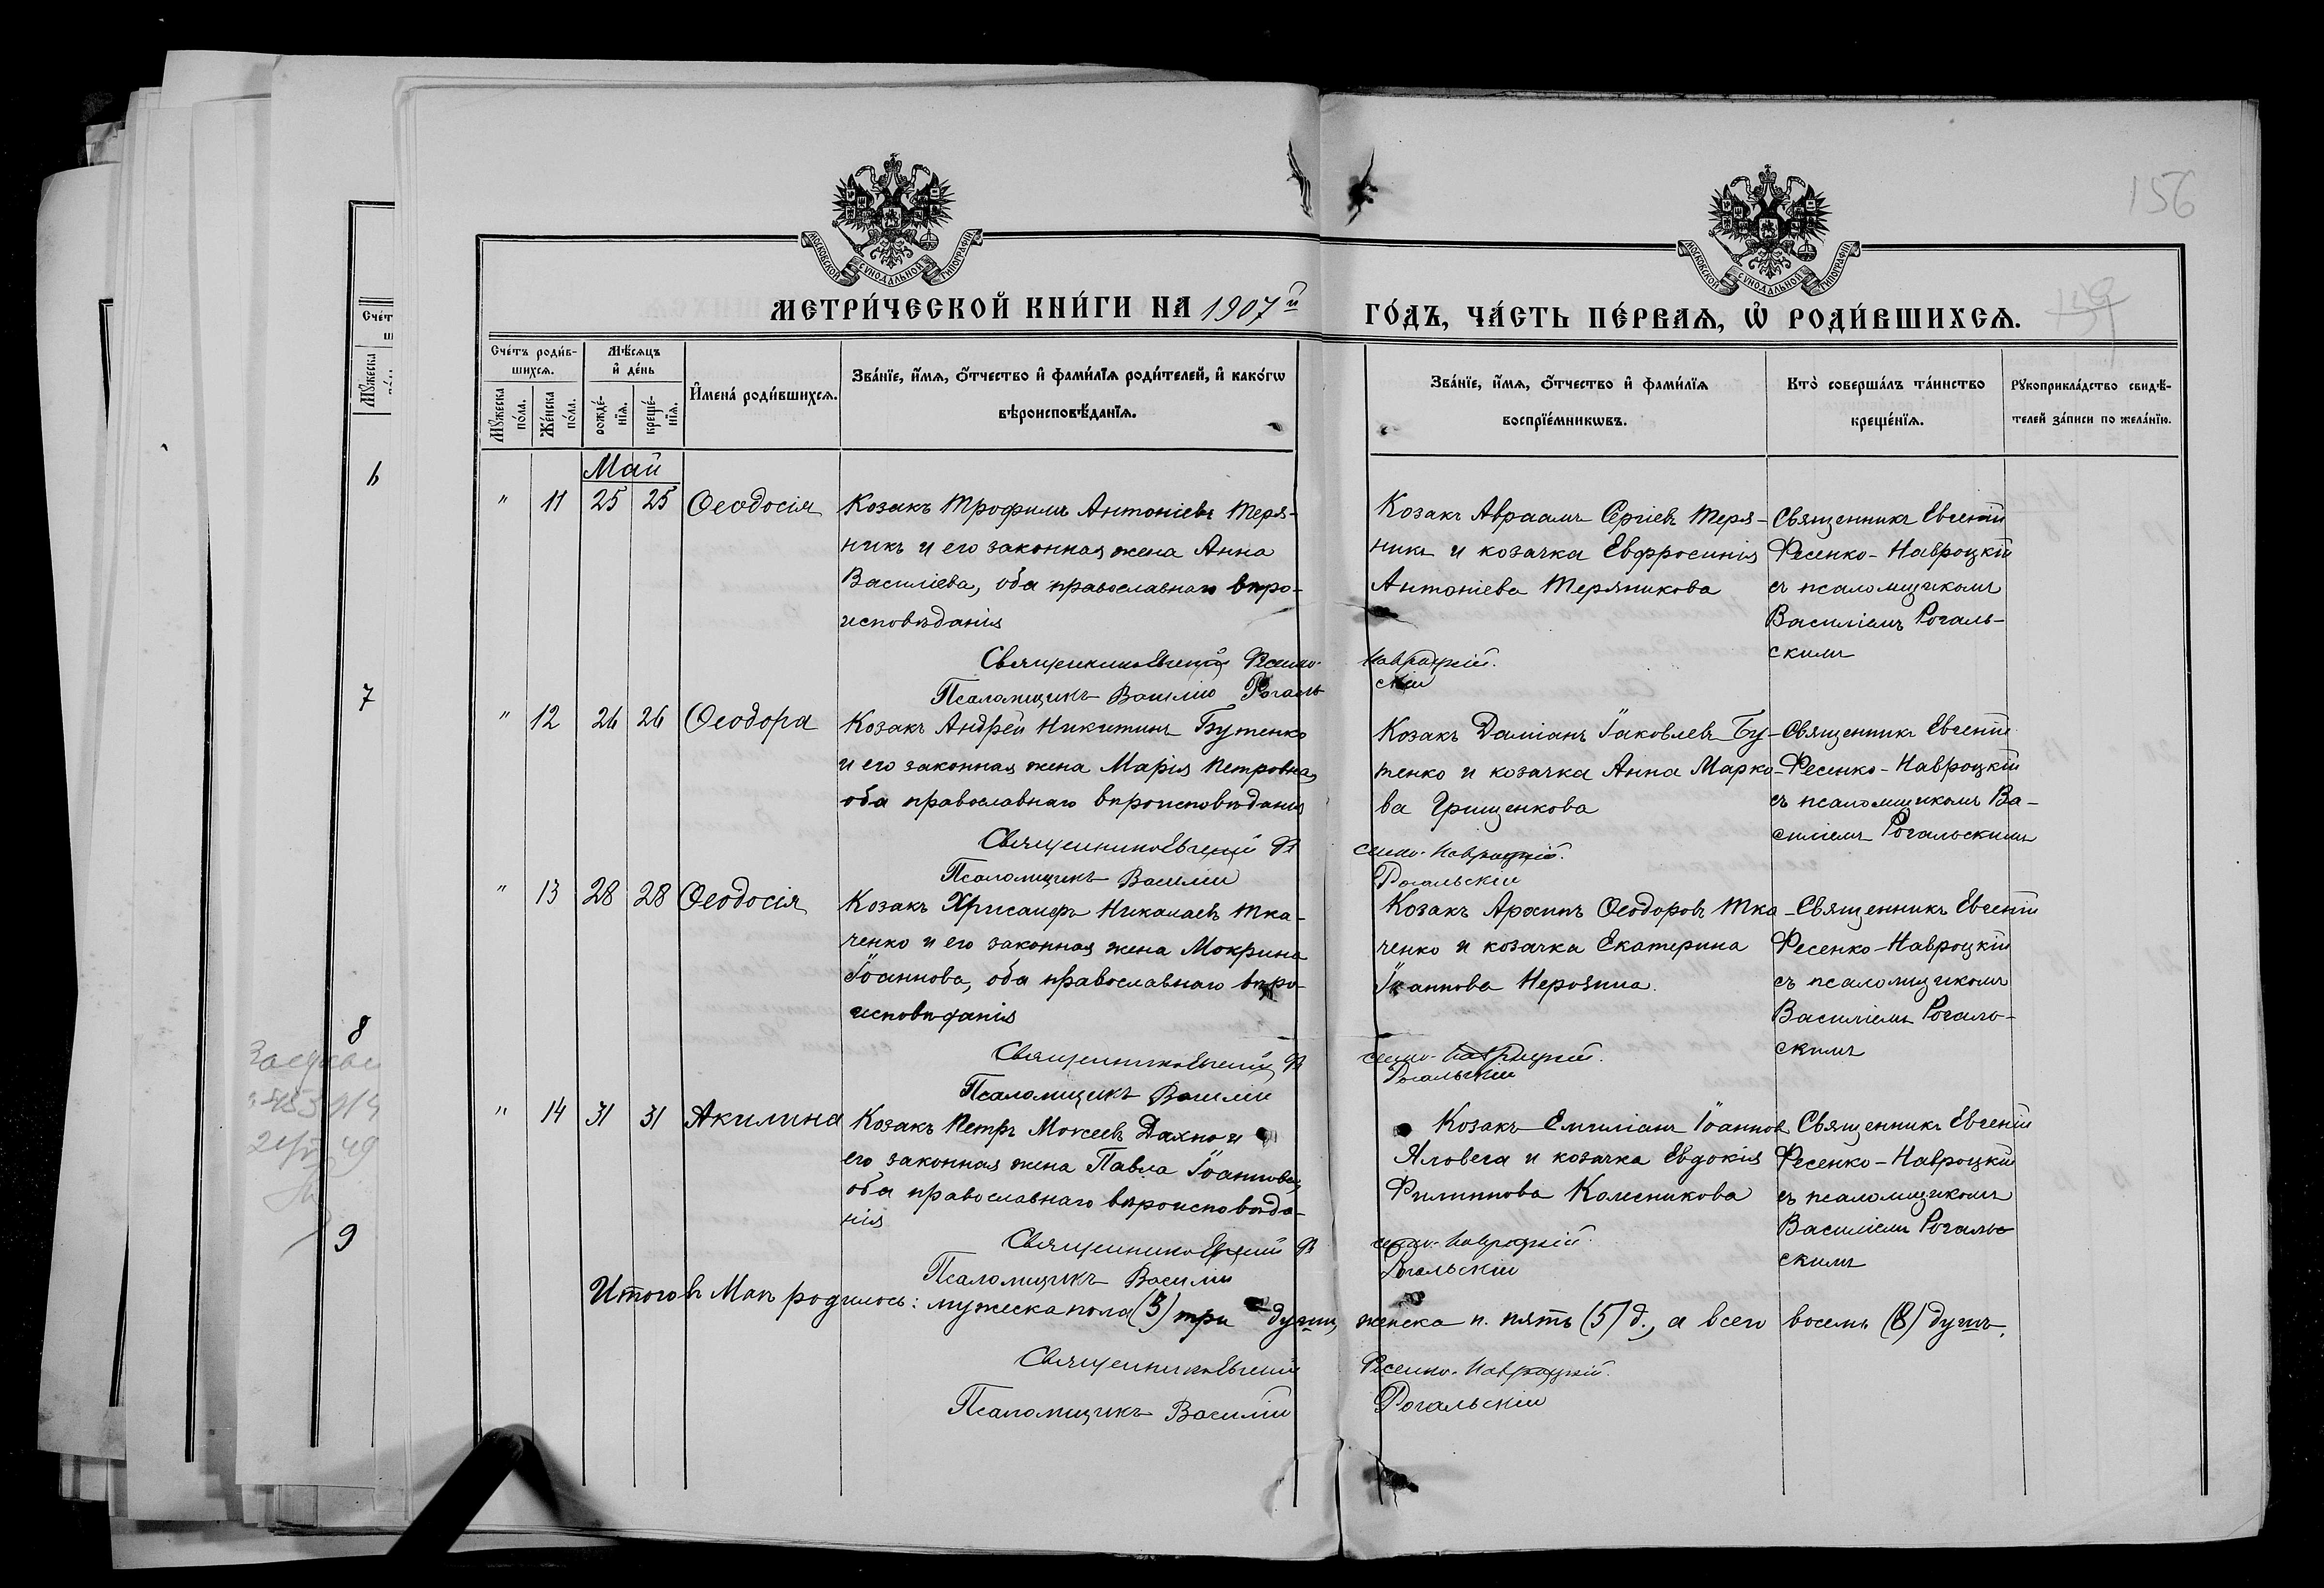 156
МОСКОВСКОЙ СѴНОДАЛЬНОЙ ТИПОГРАФІИ
МОСКОВСКОЙ СѴНОДАЛЬНОЙ ТИПОГРАФІИ
МЕТРИ́ЧЕСКОЙ КНИ́ГИ НА 1907й ГО́ДЪ, ЧА́СТЬ ПЕ́РВАѦ, Ѽ РОДИ́ВШИХСѦ.
Сче́тъ роди́в-
шихсѧ.
Мꙋ́жеска
по́ла.
Же́нска
по́ла.
Мѣ́сѧцъ
и҆ де́нь
рожде́-
нїѧ.
креще́-
нїѧ.
И҆мена̀ роди́вшихсѧ.
Зва́нїе, и҆́мѧ, ѻ҆́тчество и҆ фами́лїѧ роди́телей, и҆ како́гѡ
вѣроисповѣ́данїѧ.
Зва́нїе, и҆́мѧ, ѻ҆́тчество и҆ фами́лїѧ
воспрїе́мникѡвъ.
Кто̀ соверша́лъ та́инство
креще́нїѧ.
Рꙋкоприкла́дство свидѣ́-
телей за́писи по жела́нїю.
Май
" 11 25 25 Ѳеодосія
Козакъ Трофимъ Антоніевъ Теря-
никъ и его законная жена Анна
Василіева, оба православнаго вѣро-
исповѣданія
Козакъ Авраамъ Сергіевъ Теря-
никъ и козачка Евфросинія
Антоніева Терянникова
Священникъ Евгеній
Фесенко-Навроцкій
съ псаломщикомъ
Василіемъ Рогаль-
скимъ
Священникъ Евгеній Фесенко-Навроцкій.
Псаломщикъ Василій Рогальскій
" 12 26 26 Ѳеодора
Козакъ Андрей Никитинъ Бутенко
и его законная жена Марія Петровна,
оба православнаго вѣроисповѣданія
Козакъ Даміанъ Іаковлевъ Бу-
тенко и козачка Анна Марко-
ва Грищенкова
Священникъ Евгеній
Фесенко-Навроцкій
съ псаломщикомъ Ва-
силіемъ Рогальскимъ
Священникъ Евгеній Фесенко-Навроцкій.
Псаломщикъ Василій Рогальскій
" 13 28 28 Ѳеодосія
Козакъ Хрисанфъ Николаевъ Тка-
ченко и его законная жена Мокрина
Іоаннова, оба православнаго вѣро-
исповѣданія
Козакъ Архипъ Ѳеодоровъ Тка-
ченко и козачка Екатерина
Іоаннова
Священникъ Евгеній
Фесенко-Навроцкій
съ псаломщикомъ
Василіемъ Рогаль-
скимъ
Священникъ Евгеній Фесенко-Навроцкій.
Псаломщикъ Василій Рогальскій
" 14 31 31 Акилина
Козакъ Петръ Мокеевъ Дахно и
его законная жена Павла Іоаннова,
оба православнаго вѣроисповѣда-
нія
Козакъ Емиліанъ Іоанновъ
Яловега и козачка Евдокія
Филиппова Колесникова
Священникъ Евгеній
Фесенко-Навроцкій
съ псаломщикомъ
Василіемъ Рогаль-
скимъ
Священникъ Евгеній Фесенко-Навроцкій.
Псаломщикъ Василій Рогальскій
Итого въ Маѣ родилось: мужеска пола (3) три души, женска п. пять (5) д., а всего восемь (8) душъ.
Священникъ Евгеній Фесенко-Навроцкій.
Псаломщикъ Василій Рогальскій
Сче́т
Мꙋ́жеска
6
7
8
9